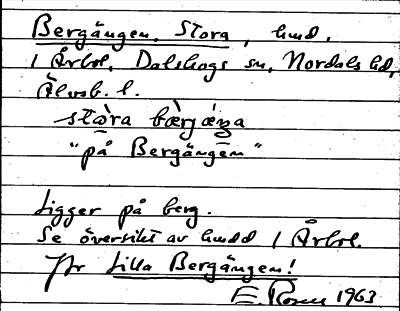 Bergängen, Stora, hmd.
i Årbol, Dalskogs sn, Nordals hd,
Älvsb. l.
stὼra bæ̀rgǽŋa
"på Bergängen"
Ligger på berg.
Se översikt av hmdd i Årbol.
Jfr Lilla Bergängen!
E. Rosen 1963